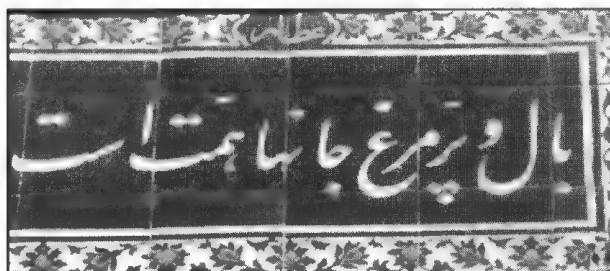 عطار
بال و پر مرغ جانها همت است